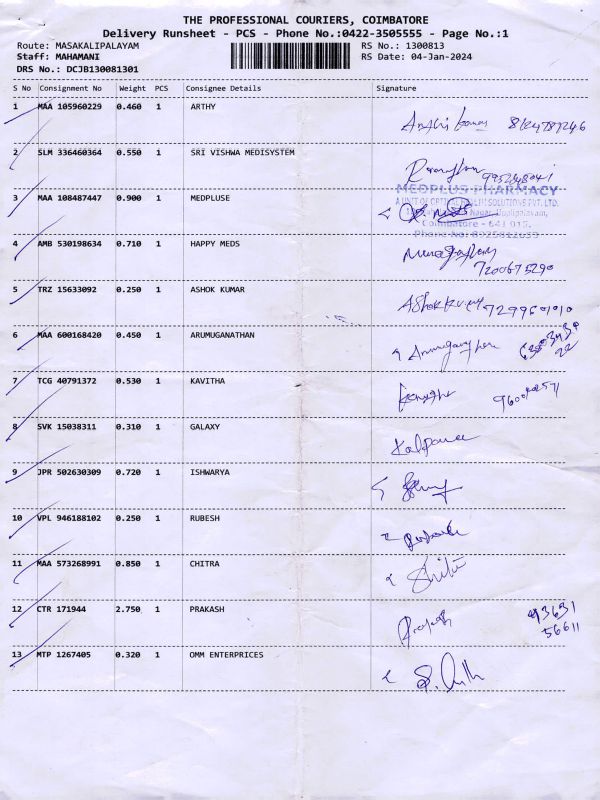 THE PROFESSIONAL COURIERS, COIMBATORE
Delivery Runsheet - PCS - Phone No.:0422-3505555 - Page No.:1
Route: MASAKALIPALAYAM RS No.: 1300813
Staff: MAHAMANI RS Date: 04-Jan-2024
DRS No.: DCJB130081301
S No Consignment No Weight PCS Consignee Details Signature
1 MAA 105960229 0.460 1 ARTHY
2 SLM 336460364 0.550 1 SRI VISHWA MEDISYSTEM
MEDPLUS PHARMACY
3 MAA 108487447 0.900 1 MEDPLUSE
Coimbatore - 641 015.
4 AMB 530198634 0.710 1 HAPPY MEDS
7200675290
5 TRZ 15633092 0.250 1 ASHOK KUMAR Ashok kumar 7299601010
6 MAA 600168420 0.450 1 ARUMUGANATHAN
7 TCG 40791372 0.530 1 KAVITHA
8 SVK 15038311 0.310 1 GALAXY Kalpana
9 JPR 502630309 0.720 1 ISHWARYA
10 VPL 946188102 0.250 1 RUBESH
11 MAA 573268991 0.850 1 CHITRA
12 CTR 171944 2.750 1 PRAKASH 93631
56611
13 MTP 1267405 0.320 1 OMM ENTERPRICES